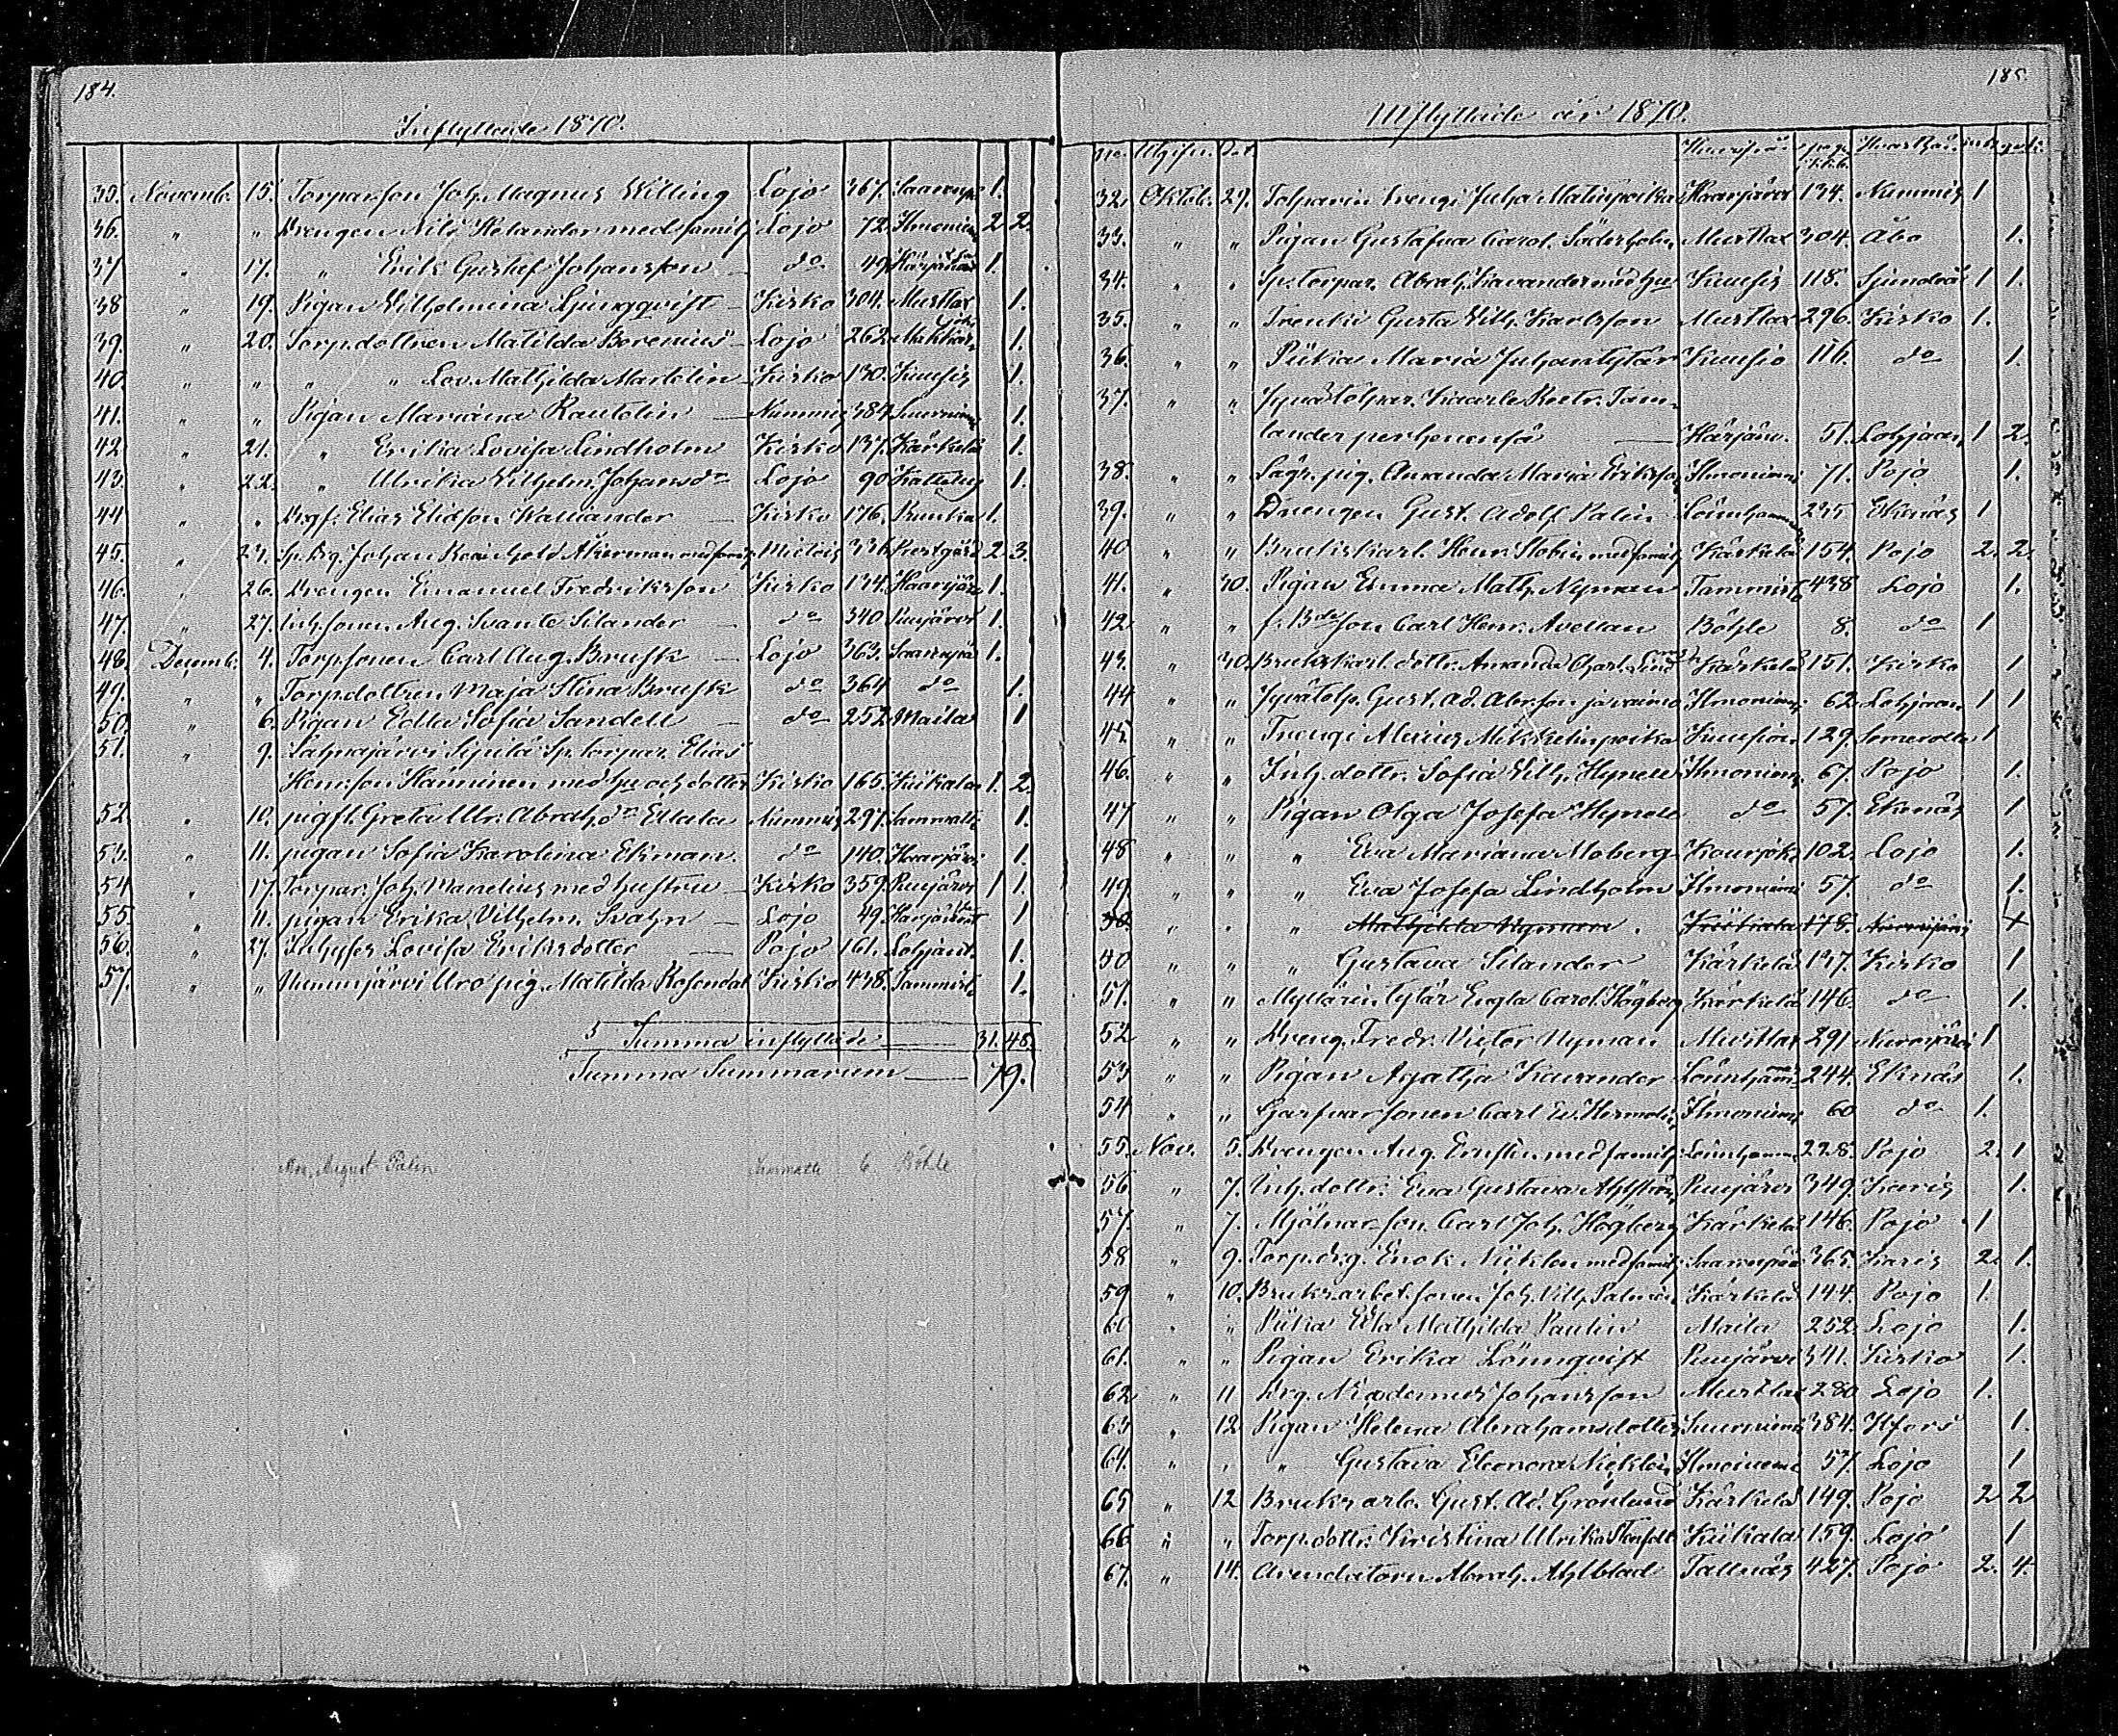 184.
Inflyttade 1870.
35. Novemb. 15. Torparson Joh. Magnus Willing Lojo 367. Saarenpä 1.
36. " " Drengen Nils Helander med familj Lojo 72. Ilmoniemi 2 2.
37 " 17. " Erik Gustef Johansson do 49. Härjänvatsa 1.
38 " 19. Pigan Vilhelmina Ljungqvist Kisko 304. Mustlax 1.
39. " 20. Torp.dottren Matilda Borenius Lojo 262. 1.
40. " " " " Lov. Mathilda Martelin Kisko 130. Kuusis 1.
41. " " Pigan Mariana Rautelin Nummis 384. Suurniemi 1.
42 " 21. " Erika Lovisa Lindholm Kisko 137. Kärkelä 1.
43. " 22. " Ulrika Vilhelm. Johansdr Lojo 90 1.
44 " " Drgf. Elias Eliasson Kisko 176. 1.
45. " 23. Sp. Drg. Johan Reinhold Åkerman med familj Mietois 336. Prestgård 2. 3.
46. " 26. Drengen Emanuel Fredriksson Kisko 134. Haarjärvi 1.
47. " 27. Inh.sonen Aug. Svante Silander do 340 Puujärvi 1.
48. Decemb. 4. Torpsonen Carl Aug. Brusk Lojo 363. Saarenpä 1.
49. " " Torp.dottren Maja Stina Brusk do 364 do 1.
50. " 6. Pigan Edla Sofia Sandell do 252. Maila 1
51. " 9. Sahnajärvi Sipilä Sp. torpar. Elias
Henr.son Hänninen med hu och dotter Kisko 165. Kiikala 1. 2.
52. " 10. pigfl. Greta Ulr. Abrah.dr Ettala Nummis 297. Sammatti 1.
53. " 11. pigan Sofia Karolina Ekman. do 140. Haarjärvi 1.
54 " 17. Torpar. Joh. Manelius med hustru Kisko 359. Puujärvi 1 1.
55. " 11. pigan Erika Vilhelm. Svahn Lojo 49. Härjänvatsa 1
56. " 27. Inhyses Lovisa Eriksdotter Pojo 161. 1.
57. " " Nummijärvi Uro pig. Matilda Rosendal Kisko 438. Tammisto 1.
Summa inflyttade 31. 48.
Summa Summarum 79.
August Palin Sammatti 6. Böhle
185
Utflyttade år 1870.
No. Utgifn. dat. Hvarifrån pag. Hvarthän
32. Oktob. 29. Torparin trengi Juha Matinpoika Haarjärvi 134. Nummis 1
33. " " Pigan Gustafva Carol. Söderholm Mustlax 304. Åbo 1.
34. " " Sp. torpar. Abrah. Kavander med hu Kuusis 118. Sjundeå 1 1.
35. " " Trenki Gusta Vilh. Karlsson Mustlax 296. Kisko 1.
36. " " Piika Maria Juhantytär Kuusio 116. do 1.
37. " " Jyvätorpar. Kaarle Reetr. Tam-
lander perheinensä Härjänv. 51. Lohjaan 1 2.
38. " " Lagr. pig. Amanda Maria Eriksson Ilmoniemi 71. Pojo 1.
39. " " Drengen Gust. Adolf Palin Lönnhammar 235 Ekenäs 1
40 " " Brukskarl. Henr. med familj Kärkelä 154. Pojo 2. 2.
41. " 30. Pigan Emma Math. Nyman Tammisto 438 Lojo 1.
42 " " f. Bdeson Carl Henr. Avellan Böhle 8. do 1
43. " 30. Brukskarl. dottr. Amanda Charl. Lind Kärkelä 151. Kisko 1
44 " " Jyvätorp. Gust. Ad. Abr.son ja vaimo Ilmoniemi 62. Lohjaan 1 1
45. " " Trengi Mikkelinpoika Kuusion 129. Somerolle 1
46. " " Inh. dottr. Sofia Vilh. Hynell Ilmoniemi 67. Pojo 1.
47 " " Pigan Olga Josefa Hynell do 57. Ekenäs 1
48 " " " Eva Mariana Moberg Kourjoki 102. Lojo 1.
49. " " " Eva Josefa Lindholm Ilmoniemi 57. do 1.
50. " " " Mathilda Nyman. 178. Nurmijärvi 1
50 " " " Gustava Silander Kärkelä 137. Kisko 1
51. " " Myllärin tytär Engla Carol. Högberg Kärkelä 146. do 1.
52 " " Dreng. Fredr. Victor Nyman Mustlax 291 Nurmijärvi 1
53 " " Pigan Agatha Kavander Lönnhammar 244. Ekenäs 1.
54 " " Garfvarsonen Carl Ed. Hermelin Ilmoniemi 60 do 1.
55. Nov. 5. Drengen Aug. Ernstén med familj Lönnhammar 228. Pojo 2. 1
56 " 7. Inh. dottr. Eva Gustava Ahlström Puujärvi 349. Karis 1.
57. " 7. Mjölnarson Carl Joh. Högberg Kärkelä 146 Pojo 1
58 " 9. Torp. drg. Enok Nicklen med familj Saarenpää 365. Karis 2. 1.
59 " 10. Bruksarbet.sonen Joh. Vilh. Palmén Kärkelä 144. Pojo 1.
60 " " Piika Eva Mathilda Paulin Maila 252. Lojo 1.
61. " " Pigan Erika Lönnqvist Puujärvi 341. Kisko 1.
62 " 11 Drg. Nicodemus Johansson Mustlax 280 Lojo 1.
63 " 12 Pigan Helena Abrahamsdotter Suurniemi 384. Hfors 1.
64. " " " Gustava Eleonora Nicklén Ilmoniemi 57. Lojo 1
65 " 12 Bruksarb. Gust. Ad. Grönlund Kärkelä 149. Pojo 2. 2
66 " " Torp.dottr. Kristina Ulrika Stenfelt Kiikala 159. Lojo 1
67. " 14. Arendatorn Abrah. Ahlblad Tallnäs 427. Pojo 2. 4.